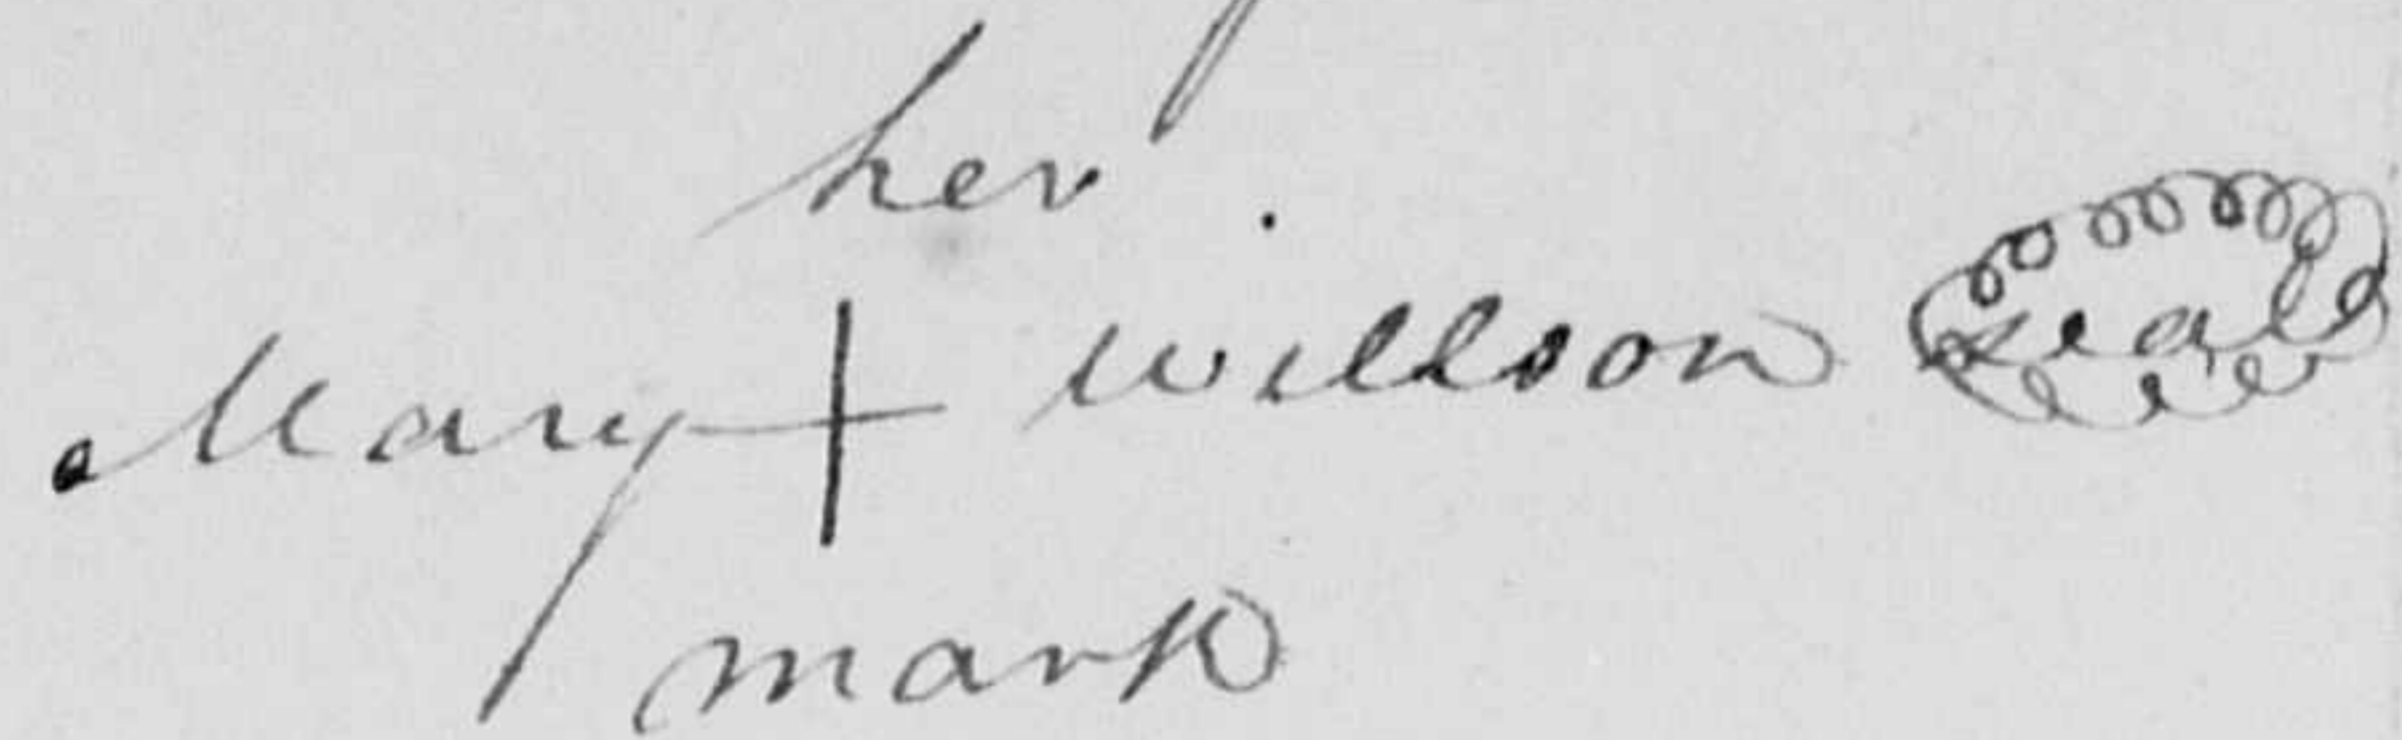 her
Mary + Willson seal
mark